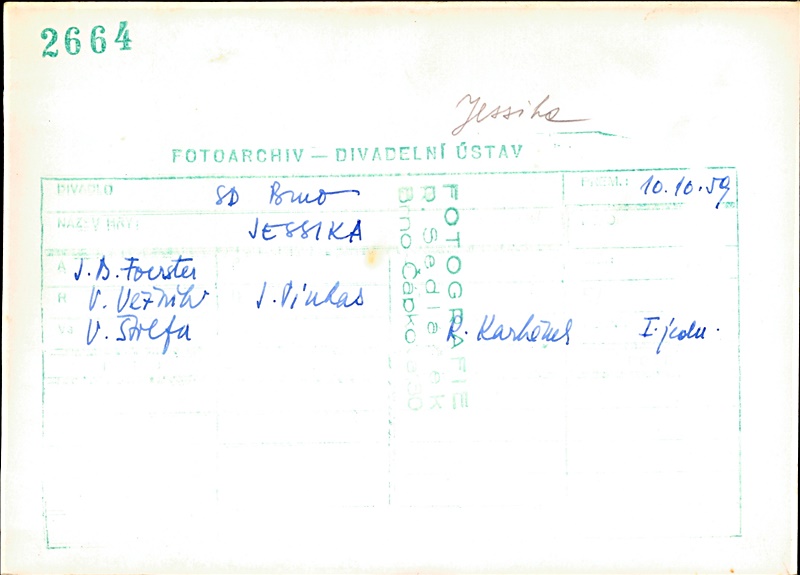 2664
Jessika
FOTOARCHIV — DIVADELNÍ ÚSTAV
DIVADLO SD Brno PREM.: 10.10.59
NÁZEV HRY: JESSIKA
A J. B. Foerster
R V. Věžník J. Pinkas
V. Štolfa R. Karhánek I. jedn.
FOTOGRAFIE
R. Sedláček
Brno Čápkova